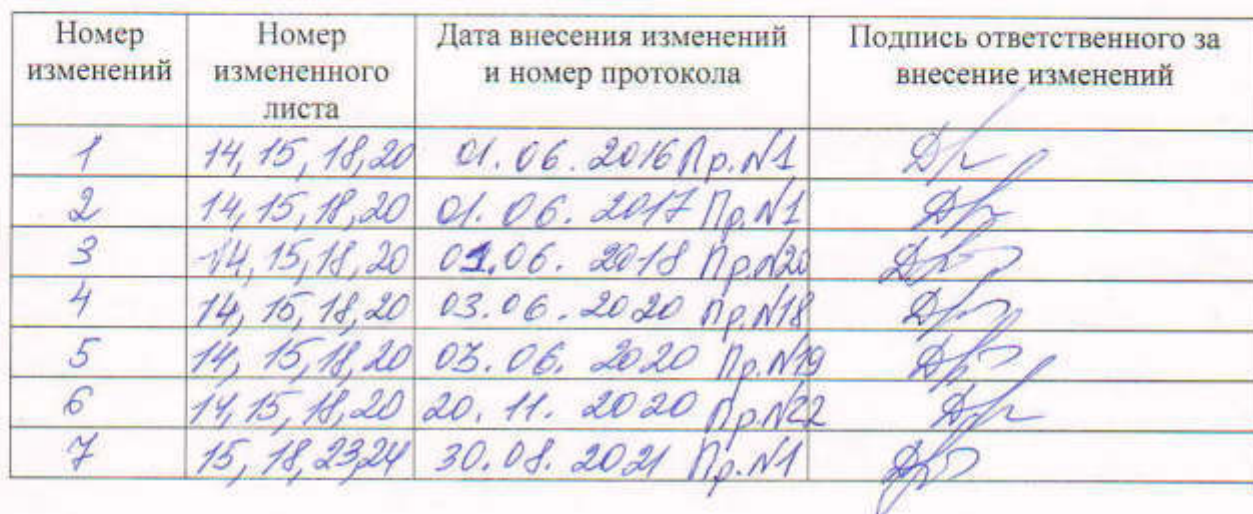 Номер изменений Номер измененного листа Дата внесения изменений и номер протокола Подпись ответственного за внесение изменений
1 14, 15, 18, 20 01. 06. 2016 Пр. №1
2 14, 15, 18, 20 01. 06. 2017 Пр. №1
3 14, 15, 18, 20 01.06. 2018 Пр. №20
4 14, 15, 18, 20 03.06. 2020 Пр. №18
5 14, 15, 18, 20 03. 06. 2020 Пр. №19
6 14, 15, 18, 20 20. 11. 2020 Пр. №22
7 15, 18, 23, 24 30. 08. 2021 Пр. №1